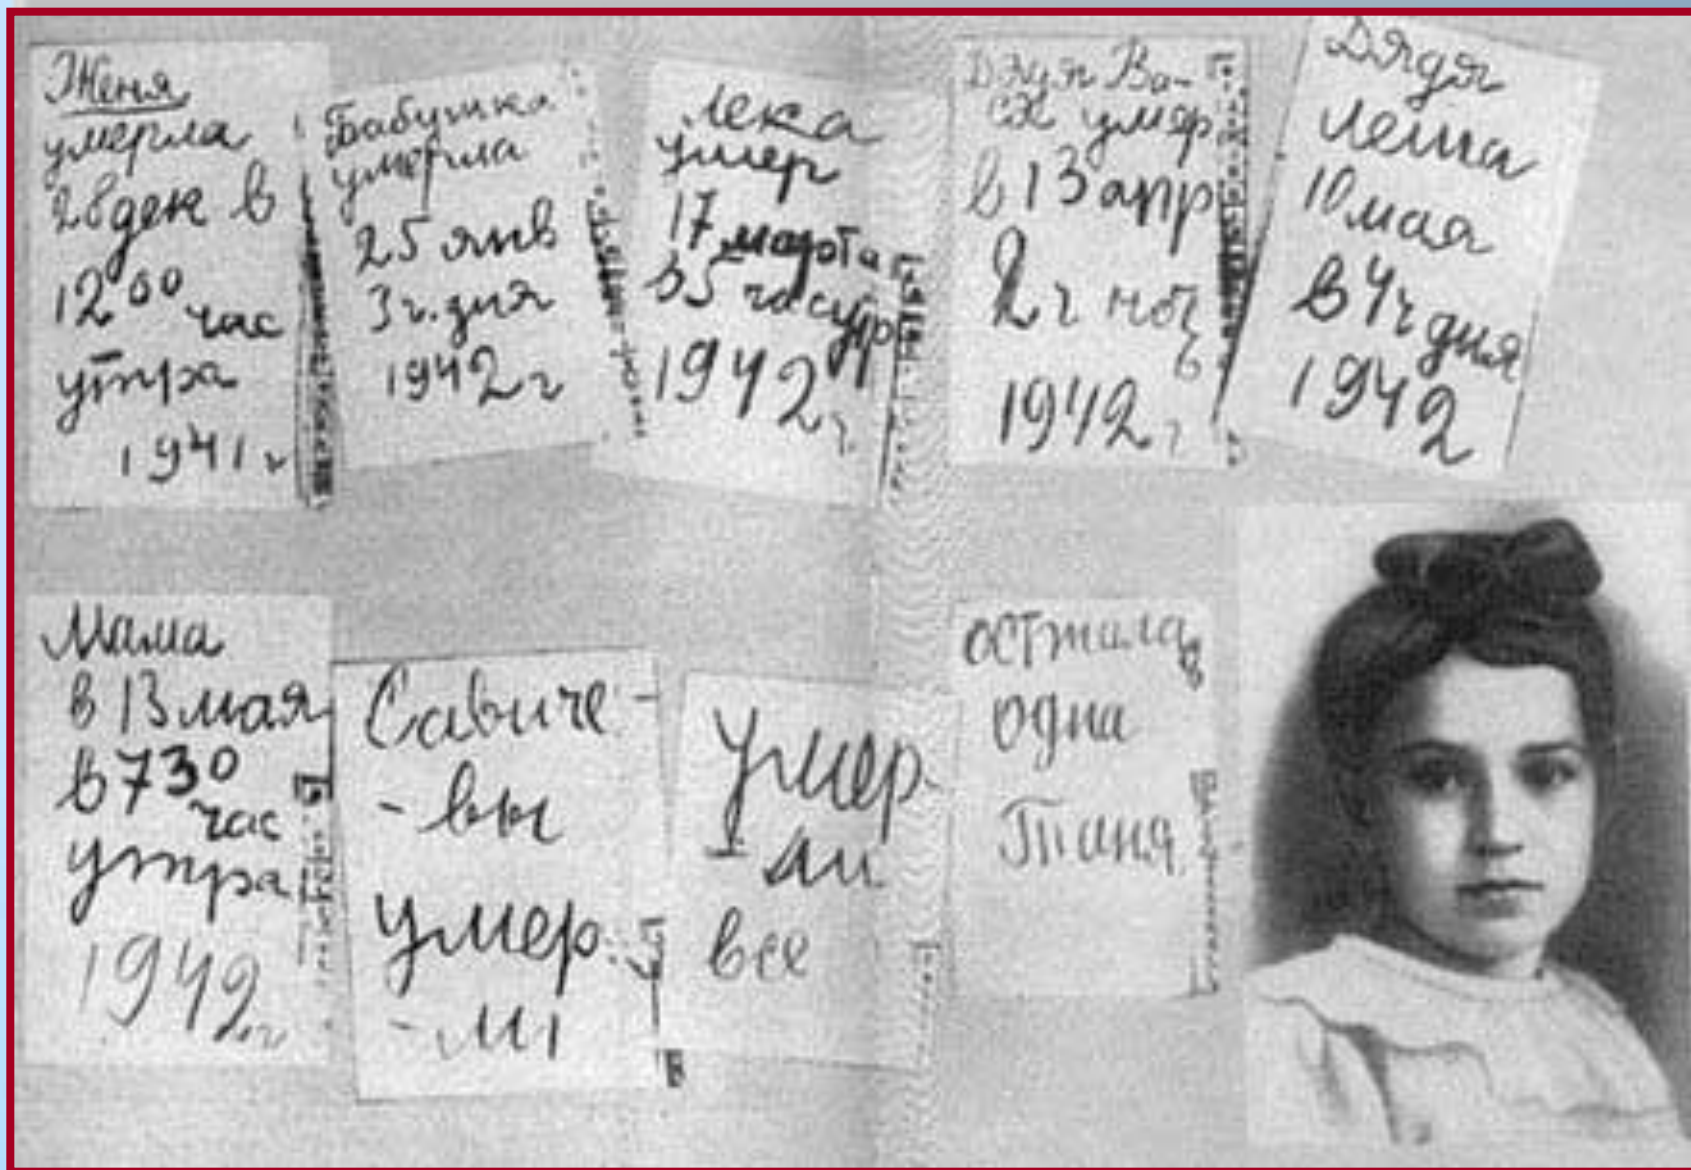 Женя
умерла
28 дек в
12⁰⁰ час
утра
1941 г
Бабушка
умерла
25 янв
3 ч. дня
1942 г
Лека
умер
17 марта
в 5 час утр
1942 г.
Дядя Ва-
ся умер
в 13 апр
2 ч ноч
ь
1942 г
Дядя
Леша
10 мая
в 4 ч дня
1942
Мама
в 13 мая
в 7 30
час
утра
1942 г
Савиче-
-вы
умер
-ли
Умер-
-ли
все
осталась
одна
Таня